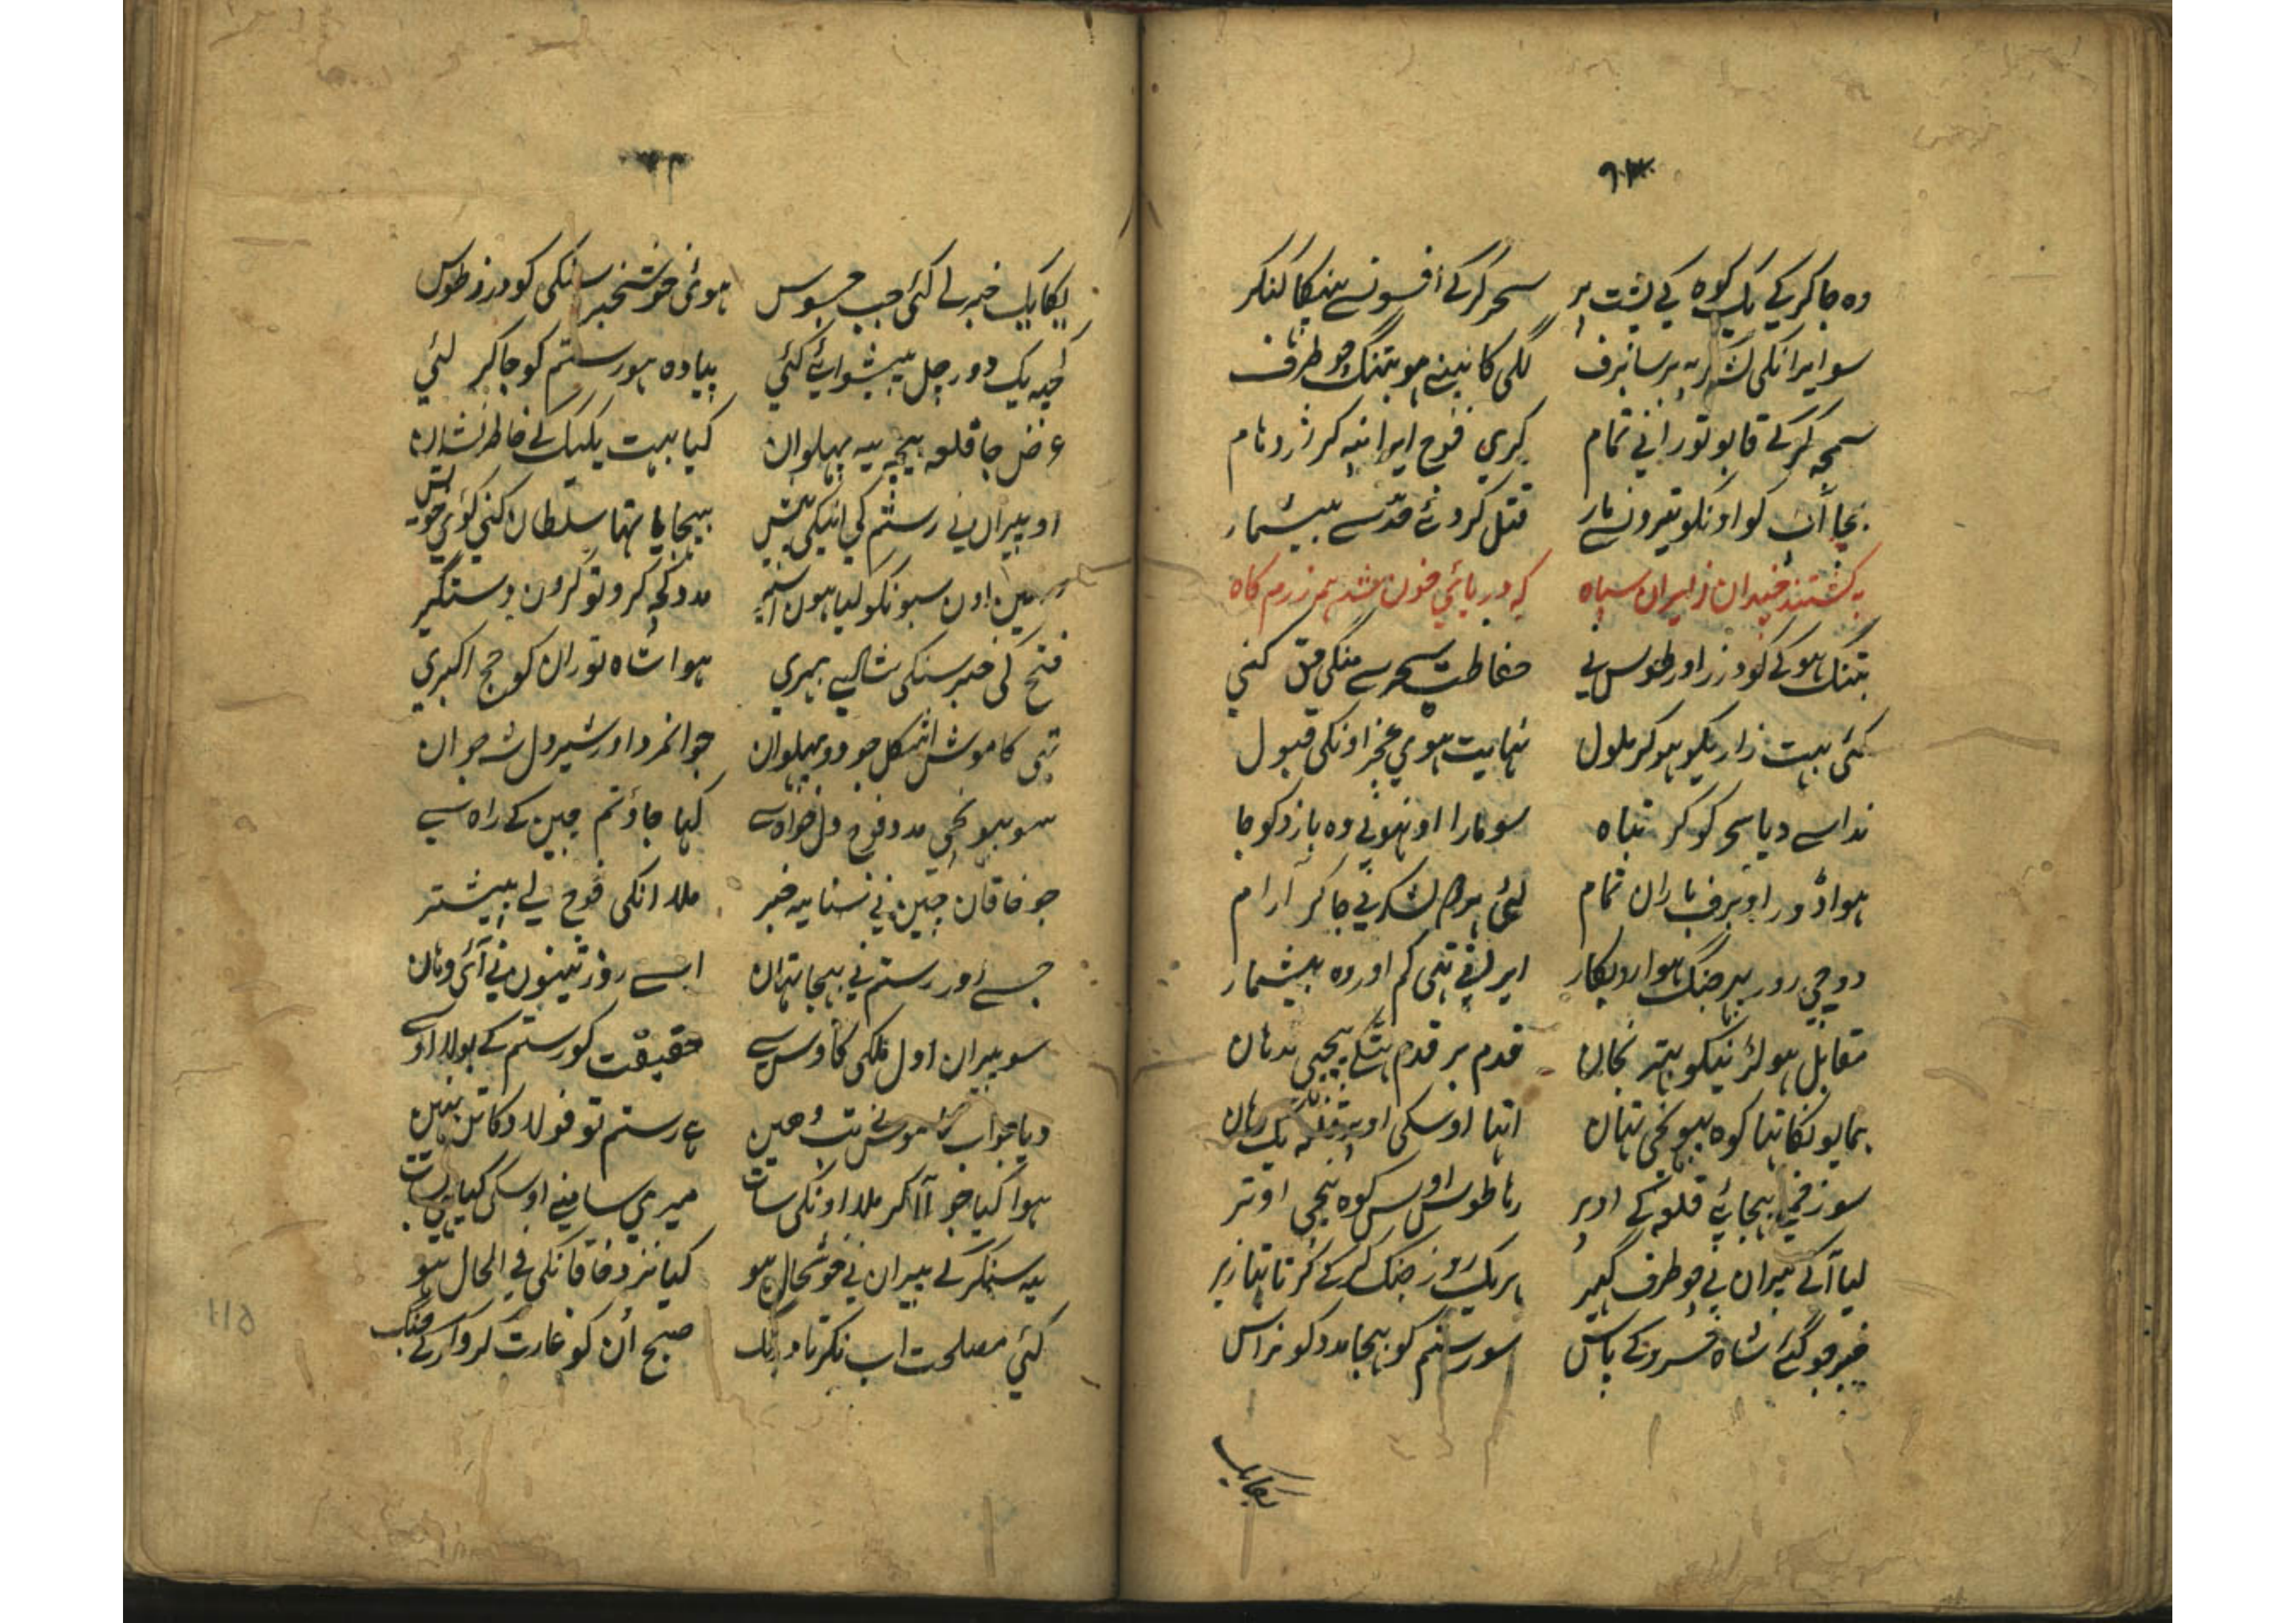 ۹۳
وہ جاکر کے یک کوہ کی پشت پر سحر کرکے افسونسے پہنکا کنکر
سو ایرانکی لشکر پہ برسا برف لگی کانپنے ہو بتنک چو طرف
سمجہ کرکے قابو تورانی تمام کری فوج ایرانپہ کر
اونکو تیرونسے مار قتل کر دئے حدسے بیشمار
بکشتند چندان ز ایران سپاہ کہ دریائی خون شد ہمہ رزم کاہ
بتنک ہوکے کودرز اور طوس نے حفاظت سحر سے منکی کنی
کئی بہت زاریکو ہوکر ملول نہایت ہوی عجز اونکی قبول
ندا سے دیا سحر کو کر تباہ سو مارا اونہونے وہ بازو کو جا
ہوا دور او برف باران تمام لئی لشکر نے جاکر آرام
دوجی روز پہر جنک ہوا ایرانی تہی کم اور وہ بیشمار
مقابل ہو لڑنیکو بہتر نجان قدم بر قدم ہٹکے پیچہی ندہان
ہمایونکا تہا کوہ پہونچی تہان اتہا اوسکی اوپر قلعہ یک رہان
سو زخمی بیجائے قلعہ کے اوپر رہا طوس اوس کوہ نیچی اوتر
لیا آکے پیران نے چو طرف کہیر ہر یک روز جنک کرکے کرتا تہا زیر
خبر جو کئے شاہ خسرو کے پاس سو رستم کو بہیجا مدد کو
یکایک
یکایک خبر لے کئی جب جسوس ہوئی خوشخبر سنکی کودرز طوس
یک دور چل پیشوائے کئی پیادہ ہو رستم کو جاکر لئی
غرض جا قلعہ بیچہ یہ پہلوان کیا بہت یکیک کے خاطر نشان
او پیران نے رستم کی انیکی پیش بیجایا تہا سلطان کنی کوئی خویش
مین اون سبونکو لیا ہون اسیر مدد کچہ کرو تو کرون دستگیر
فتح کی خبر سنکی شالیے ہمری ہوا شاہ توران کو حج اکبری
تہی کاموش اشکل جو دو پہلوان جوانمرد اور شیر دل شہ جوان
سو پہونچی مدد فوج دل خواہ سے کہا جاؤ تم چین کے راہ سے
جو خاقان چین نے سنا یہ خبر ملا انکی فوج لے پیشتر
جسے اور رستم نے بہیجا تہان اسے روز تینون نے آئی وہان
سو پیران اول ملکی کاوس سے حقیقت کو رستم کے بولا اوسے
دیا جواب کاموش نے تب وہین ہے رستم تو فولاد کا تن نہین
ہوا کیا جو آ آکر ملا اونکی سات میری سامنے اوسکی کیا ہی بسات
یہ سنکر کے پیران نے خوشحال ہو کیا نزد خاقانکی فی الحال ہو
کئی مصلحت اب نکرنا درنک صبح اُن کو غارت کرو کرکے جنک
115